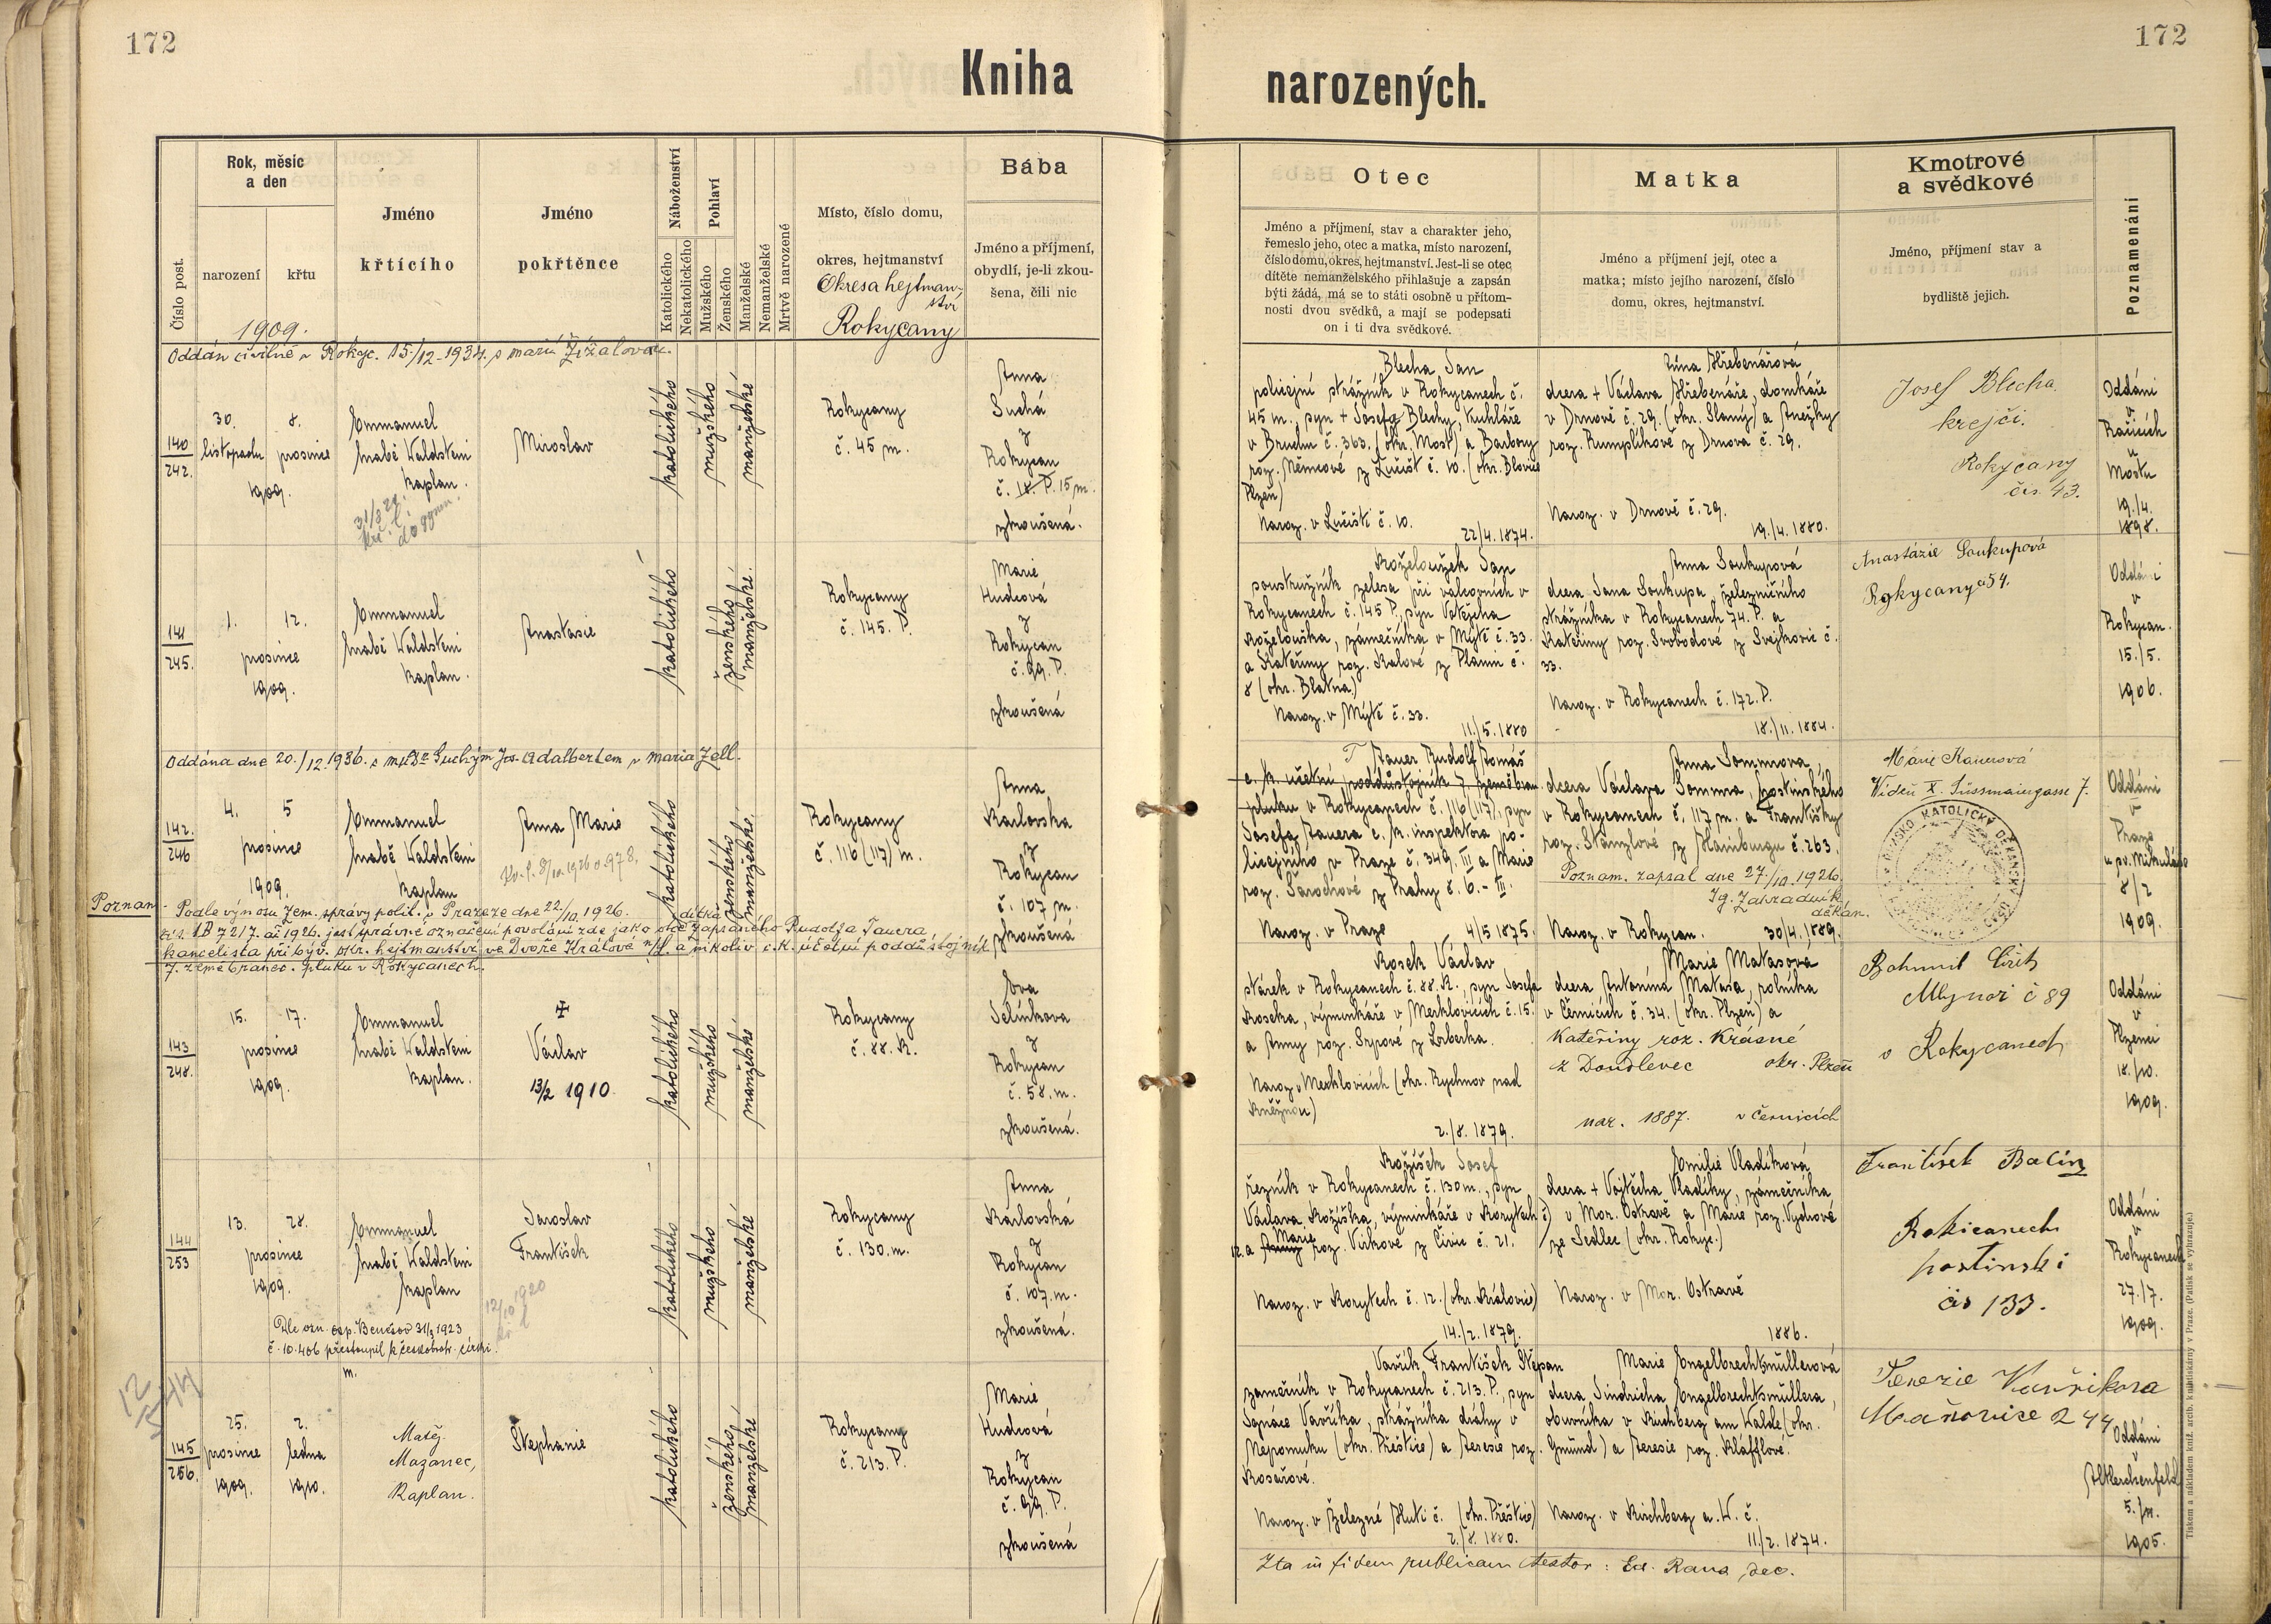 172
172
Kniha
narozených.
Číslo post.
Rok, měsíc
a den
narození
křtu
1909.
Jméno
křtícího
Jméno
pokřtěnce
Náboženství
Katolického
Nekatolického
Pohlaví
Mužského
Ženského
Manželské
Nemanželské
Mrtvě narozené
Místo, číslo domu,
okres, hejtmanství
Okres a hejtman-
ství
Rokycany
Bába
Jméno a příjmení,
obydlí, je-li zkou-
šena, čili nic
Otec
Jméno a příjmení, stav a charakter jeho,
řemeslo jeho, otec a matka, místo narození,
číslo domu, okres, hejtmanství. Jest-li se otec
dítěte nemanželského přihlašuje a zapsán
býti žádá, má se to státi osobně u přítom-
nosti dvou svědků, a mají se podepsati
on i ti dva svědkové.
Matka
Jméno a příjmení její, otec a
matka; místo jejího narození, číslo
domu, okres, hejtmanství.
Kmotrové
a svědkové
Jméno, příjmení stav a
bydliště jejich.
Poznamenání
Oddán civilně v Rokyc. 15/12-1934. s Marií Žížalovou.
140
242.
30. 8.
listopadu prosince
1909.
Emmanuel
hrabě Waldstein
kaplan.
Miroslav
katolického
mužského
manželské
Rokycany
č. 45 m.
Anna
Suchá
z
Rokycan
č. 18. P. 15 m.
zkoušená.
Blecha Jan
policejní strážník v Rokycanech č.
45 m., syn + Josefa Blechy, kuchláře
v Bruchu č. 363. (okr. Most) a Barbory
roz. Němcové z Lučišt č. 10. (okr. Blovice
Plzeň)
Naroz. v Lučišti č. 10.
22/4. 1874.
Anna Hřebenářová
dcera + Václava Hřebenáře, domkáře
v Drnově č. 29. (okr. Slaný) a Anežky
roz. Rumplíkové z Drnova č. 29.
Naroz. v Drnově č. 29.
19./4. 1880.
Josef Blecha
krejčí.
Rokycany
čís. 43.
Oddáni
v
u
Mostu
19./4.
1898.
141
245.
1. 12.
prosince
1909.
Emmanuel
hrabě Waldstein
kaplan.
Anastasie
katolického
ženského
manželské.
Rokycany
č. 145. P.
Marie
Hudcová
z
Rokycan
č. 99. P.
zkoušená
Koželoužek Jan
soustružník železa při válcovních v
Rokycanech č. 145 P., syn Vojtěcha
Koželouška, zámečníka v Mýtě č. 33.
a Kateřiny roz. Kalové z Planin č.
8 (okr. Blatná)
Naroz. v Mýtě č. 33.
11/5. 1880
Anna Soukupová
dcera Jana Soukupa, železničního
strážníka v Rokycanech 74. P. a
Kateřiny roz. Svobodové z Svejkovic č.
33.
Naroz. v Rokycanech č. 172. P.
18/11. 1884.
Anastázie Soukupová
Rokycany č 54.
Oddáni
v
Rokycan.
15./5.
1906.
Oddána dne 20./12. 1936. s MUDr Suchým Jos. Adalbertem v Maria Zell.
142.
246
4. 5
prosince
1909.
Emmanuel
hrabě Waldstein
kaplan
Anna Marie
katolického
ženského
manželské.
Rokycany
č. 116 (117) m.
Anna
Karlovská
z
Rokycan
č. 107 m.
zkoušená
Tauer Rudolf Tomáš
c. k. účetní poddůstojník 7. zeměbran.
pluku v Rokycanech č. 116 (117), syn
Josefa Tauera c. k. inspektora po-
licejního v Praze č. 349. III a Marie
roz. Šarochové z Prahy č. 6. - III.
Naroz. v Praze 4/5 1875.
Anna Sommrová,
dcera Václava Sommra, hostinského
v Rokycanech č. 117 m. a Františky
roz. Stanzlové z Hamburgu č. 263.
Poznam. zapsal dne 27./10. 1926.
Ig. Zahradník
děkan.
Naroz. v Rokycan. 30/4. 1889.
Márie Kauerová
Vídeň X. Süssmairgasse 7.
Oddáni
v
Praze
u sv. Mikuláše
8/2
1909.
Poznam. Podle výnosu Zem. správy polit. v Praze ze dne 22/10. 1926.
čís. 1B 7217. ai 1926. jest správné označení povolání zde jako otce dítka zapsaného Rudolfa Tauera
kancelista při býv. okr. hejtmanství ve Dvoře Králové n/L. a nikoliv c. k. účetní poddůstojník
7. zeměbranec. pluku v Rokycanech.
143
248.
15. 17.
prosince
1909.
Emmanuel
hrabě Waldstein
kaplan.
Václav
13/2 1910.
katolického
mužského
manželské
Rokycany
č. 88. R.
Eva
Jelínkova
z
Rokycan
č. 58. m.
zkoušená.
Kosek Václav
stárek v Rokycanech č. 88. R., syn Josefa
Koseka, výminkáře v Merklovicích č. 15.
a Anny roz. Srpové z Lorberka.
Naroz. v Merklovicích (okr. Rychnov nad
Kněžnou)
2./8. 1879.
Marie Matasová
dcera Antonína Matasa, rolníka
v Černicích č. 34. (okr. Plzeň) a
Kateřiny roz. Krásné
z Doudlevec okr. Plzeň
nar. 1887. v Černicích
Mlynář č 89
v Rokycanech
Oddáni
v
Plzenci
18./10.
1909.
144
253
13. 28.
prosince
1909.
Emmanuel
hrabě Waldstein
kaplan
Dle ozn. osp. Benešov 31/3 1923
č. 10.406 přestoupil k českobratr. církvi.
Jaroslav
František
12/10 1920
katolického
mužského
manželské
Rokycany
č. 130. m.
Anna
Karlovská
z
Rokycan
č. 107. m.
zkoušená.
Kožíšek Josef
řezník v Rokycanech č. 130 m., syn
Václava Kožíška, výminkáře v Korytech č.
12. a Anny Marie roz. Vírkové z Čivic č. 21.
Naroz. v Korytech č. 12. (okr. Kralovice)
14./2. 1879.
Emilie Vladíková
dcera + Vojtěcha Vladíky, zámečníka
v Mor. Ostravě a Marie roz. Vydrové
ze Sedlec (okr. Rokyc.)
Naroz. v Mor. Ostravě
1886.
František
Rokicanech
hostinski
čís 133.
Oddáni
v
Rokycanech
27./7.
1909.
145
256.
25. 2.
prosince ledna
1909. 1910.
Matěj
Mazanec,
Kaplan.
Štephanie
katolického
ženského
manželské
Rokycany
č. 213. P.
Marie
Hudcová
z
Rokycan
č. 99. P.
zkoušená
Vavřík František Štěpan
zámečník v Rokycanech č. 213. P., syn
Ignáce Vavříka, strážníka dráhy v
Nepomuku (okr. Přeštice) a Teresie roz.
Kosařové.
Naroz. v Železné Huti č. (okr. Přeštice)
2./8. 1880.
Marie Engelbrechtsmüllerová
dcera Jindřicha Engelbrechtsmüllera,
obuvníka v Kirchberg am Walde (okr.
Gmünd) a Teresie roz. Kläfflové.
Naroz. v Kirchberg a. W. č.
11/2. 1874.
Vavřikova
244
Oddáni
Altlerchenfeld
5./11.
1905.
Ita in fidem publicam testor: Ed. Rana, dec.
Tiskem a nákladem kníž. arcib. knihtiskárny v Praze. (Patisk se vyhrazuje.)